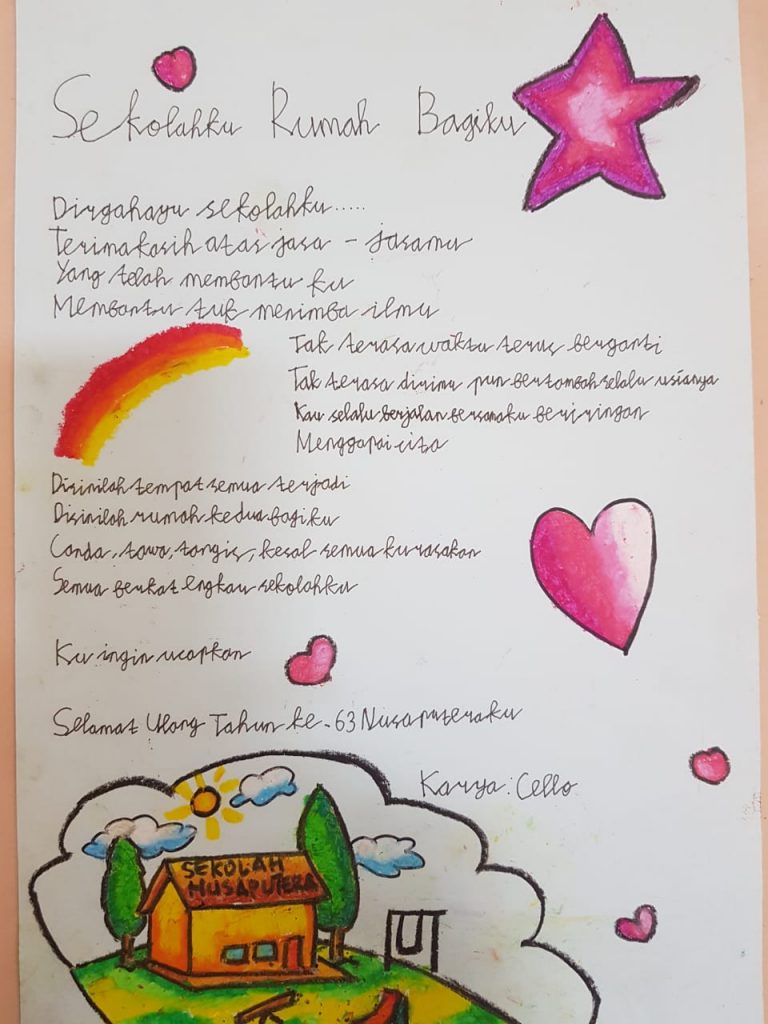 Sekolahku Rumah Bagiku
Dirgahayu sekolahku.....
Terimakasih atas jasa - jasamu
Yang telah membantu ku
Membantu tuk menimba ilmu
Tak terasa waktu terus berganti
Tak terasa dirimu pun bertambah selalu usianya
Kau selalu berjalan bersamaku beriringan
Menggapai cita
Disinilah tempat semua terjadi
Disinilah rumah kedua bagiku
Canda, tawa, tangis, kesal semua kurasakan
Semua berkat engkau sekolahku
Ku ingin ucapkan
Selamat Ulang Tahun ke-63 Nusaputeraku
Karya : Cello
SEKOLAH
NUSAPUTERA